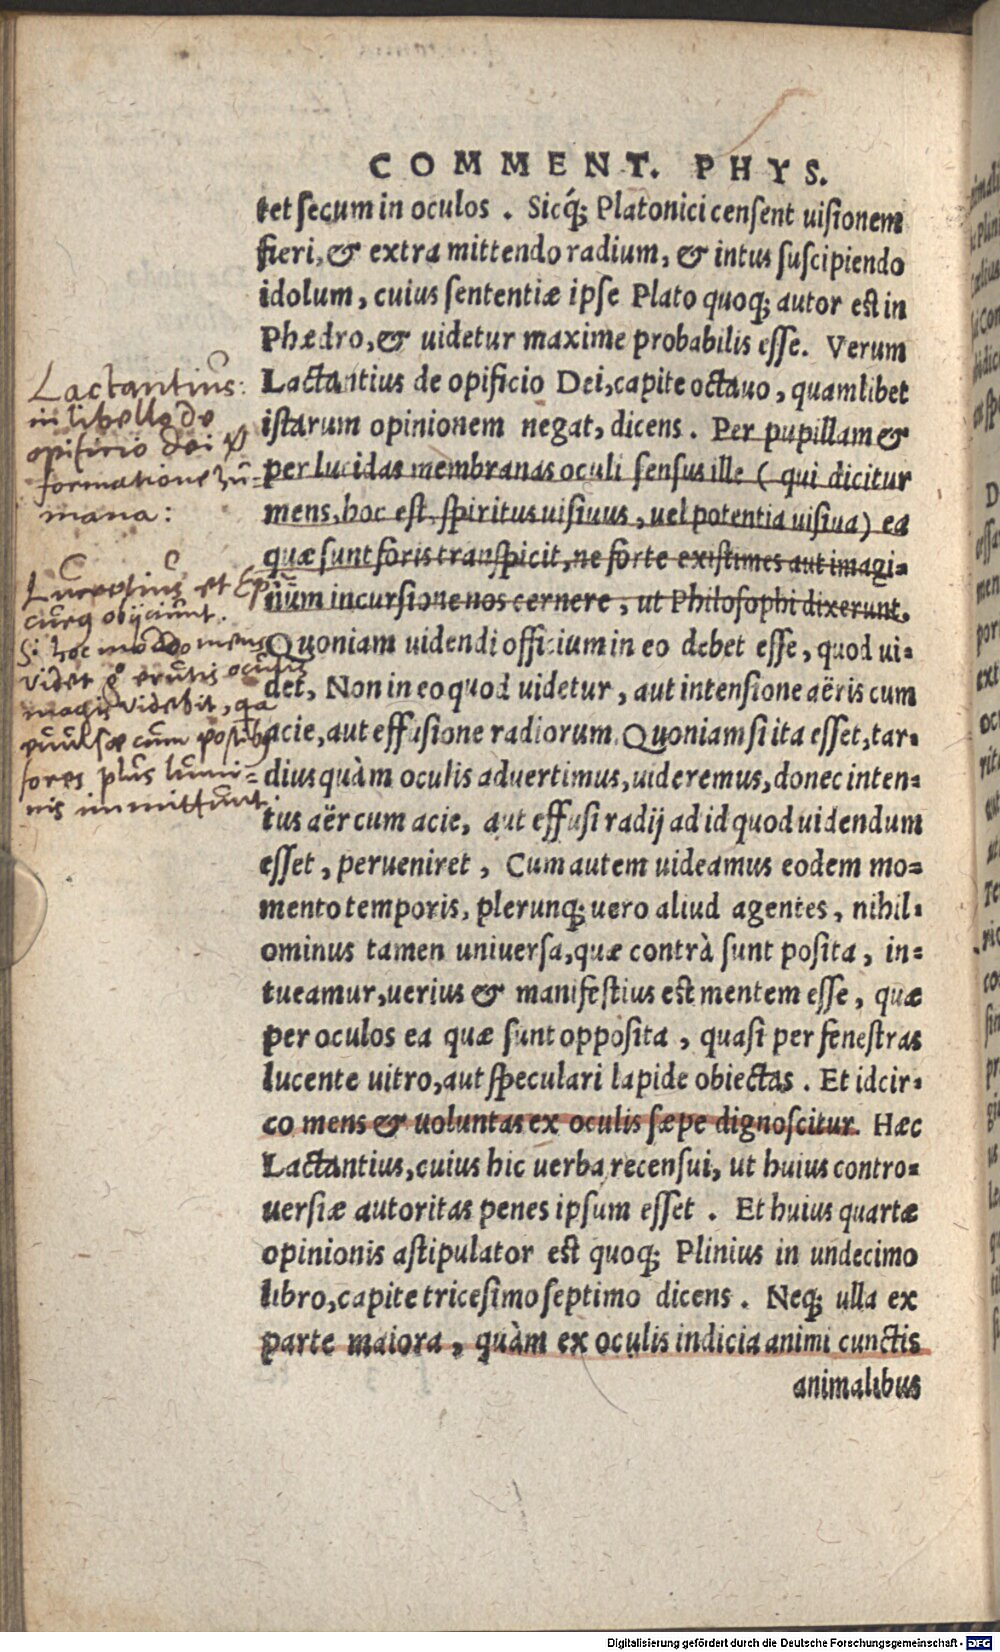 COMMENT. PHYS.
tet secum in oculos . Sicq́; Platonici censent uisionem
fieri, & extra mittendo radium, & intus suscipiendo
idolum, cuius sententiæ ipse Plato quoq; autor est in
Phædro, & uidetur maxime probabilis esse. Verum
Lactantius de opificio Dei, capite octauo, quamlibet
istarum opinionem negat, dicens . Per pupillam &
per lucidas membranas oculi sensus ille ( qui dicitur
mens, hoc est, spiritus uisiuus, uel potentia uisiua) ea
quæ sunt foris transpicit, ne forte existimes aut imagi=
num incursione nos cernere, ut Philosophi dixerunt,
Quoniam uidendi officium in eo debet esse, quod ui=
det, Non in eo quod uidetur, aut intensione aëris cum
acie, aut effusione radiorum. Quoniam si ita esset, tar=
dius quàm oculis aduertimus, uideremus, donec inten=
tus aër cum acie, aut effusi radij ad id quod uidendum
esset, perueniret, Cum autem uideamus eodem mo=
mento temporis, plerunq; uero aliud agentes, nihil=
ominus tamen uniuersa, quæ contrà sunt posita, in=
tueamur, uerius & manifestius est mentem esse, quæ
per oculos ea quæ sunt opposita, quasi per fenestras
lucente uitro, aut speculari lapide obiectas . Et idcir=
co mens & uoluntas ex oculis sæpe dignoscitur. Hæc
Lactantius, cuius hic uerba recensui, ut huius contro=
uersiæ autoritas penes ipsum esset . Et huius quartæ
opinionis astipulator est quoq; Plinius in undecimo
libro, capite tricesimo septimo dicens . Neq; ulla ex
parte maiora, quàm ex oculis indicia animi cunctis
animalibus
Lactantius:
in libello de
opificio dei
formatione hu=
mana:
Lucretius et Epi
obijciunt.
Si hoc modo mens
videt erutis oculis
magis videbit, qa
evulsæ cum postib9
fores plus lumi=
nis immittunt.
Digitalisierung gefördert durch die Deutsche Forschungsgemeinschaft - DFG